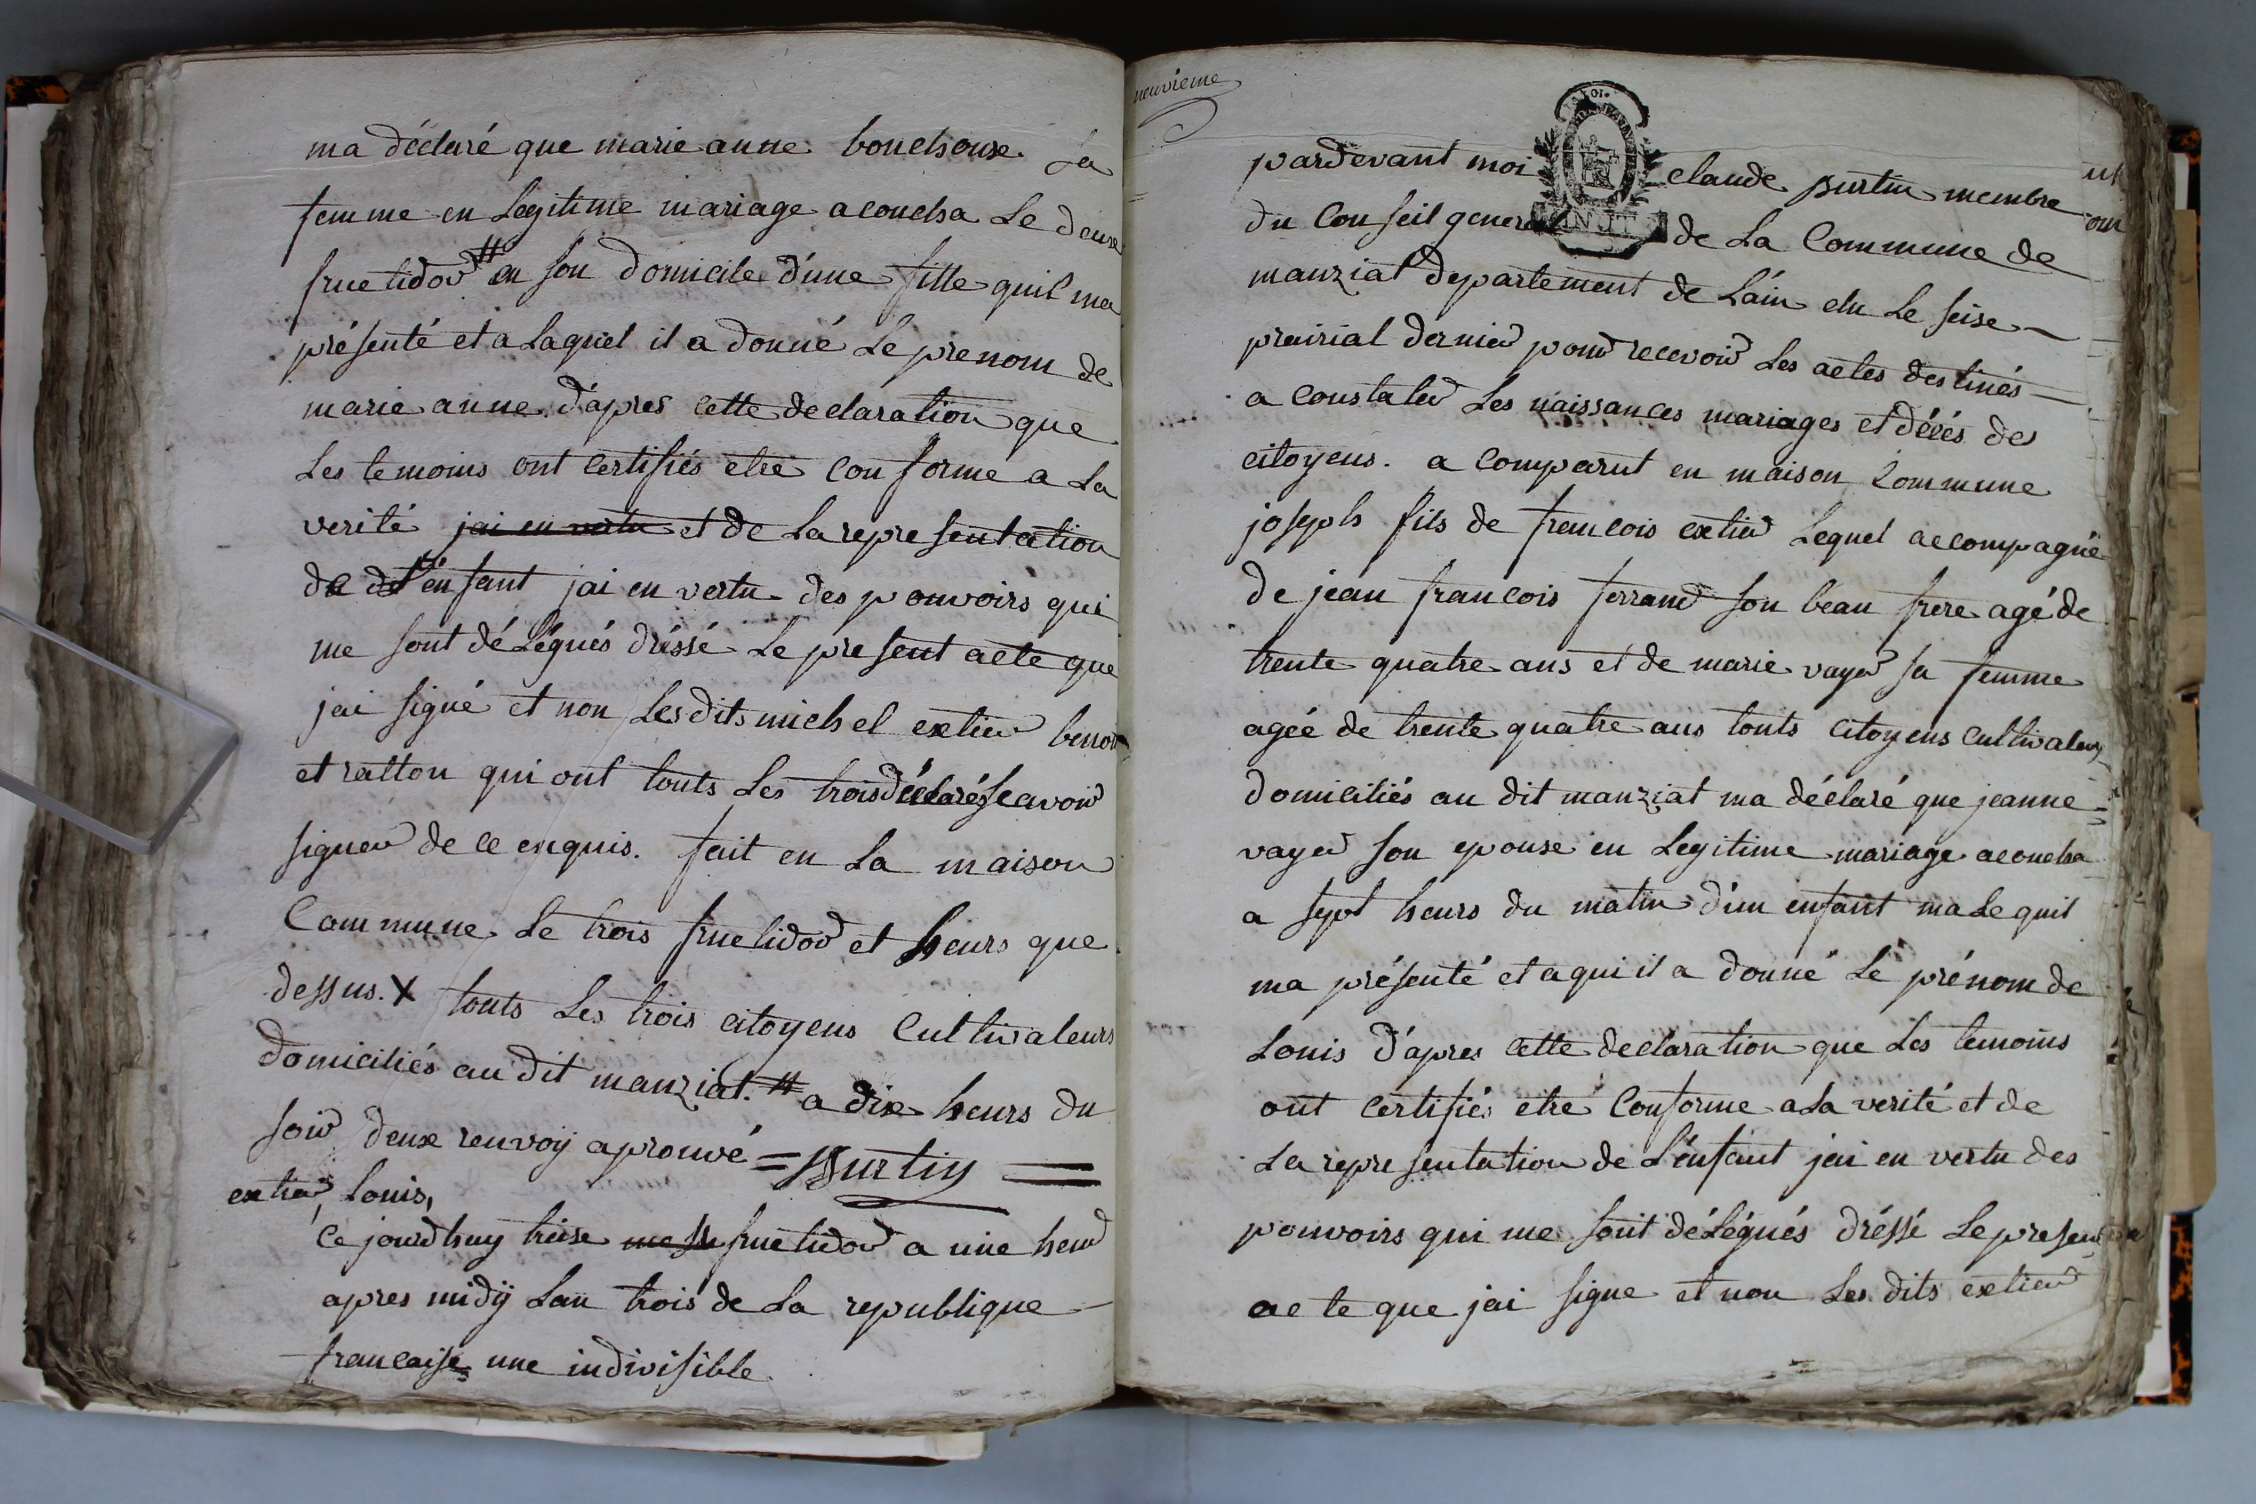 ma déclaré que marie anne bouchoux sa
femme en Legitime mariage acoucha Le deux
fructidor # en son domicile d'une fille quil ma
présenté et a Laquel il a donné Le prenom de
marie anne. d'apres cette declaration que
Les temoins ont certifiés etre conforme a La
verité jai en vertu et de La representation
de L'énfant jai en vertu des pouvoirs qui
me sont déLégués dréssé Le present acte que
jai signé et non Lesdits michel extier benoit
et ratton qui ont touts Les trois déclarés scavoir
signer de ce enquis. fait en La maison
Commune Le trois fructidor et heurs que
dessus. X touts Les trois citoyens Cultivateurs
domiciliés au dit manziat. # a dix heurs du
soir deux renvoÿ aprouvé = Purtin =
extier, Louis,
Ce jourdhuy treise fructidor a une heur
apres midÿ Lan trois de La republique
francaise une indivisible.
neuvieme
LA LOI
pardevant moi claude purtin membre
du Conseil general de La Commune de
manziat departement de Láin elu Le seise
prairial dernier pour recevoir Les actes destinés
a constater Les naissances mariages et décés des
citoyens. a comparut en maison Commune
joseph fils de francois extier Lequel accompagné
de jean francois ferrand son beau frere agé de
trente quatre ans et de marie vayer sa femme
agée de trente quatre ans touts citoyens cultivateurs
domiciliés au dit manziat ma déclaré que jeanne
vayer son epouse en Legitime mariage acoucha
a sept heurs du matin d'un enfant male quil
ma présenté et a qui il a donné Le prénom de
Louis d'apres cette declaration que Les temoins
ont certifiés etre Conforme a La verité et de
La representation de L'énfant jai en vertu des
pouvoirs qui me sont déLégués dréssé Le present
acte que jai signe et non Les dits extier